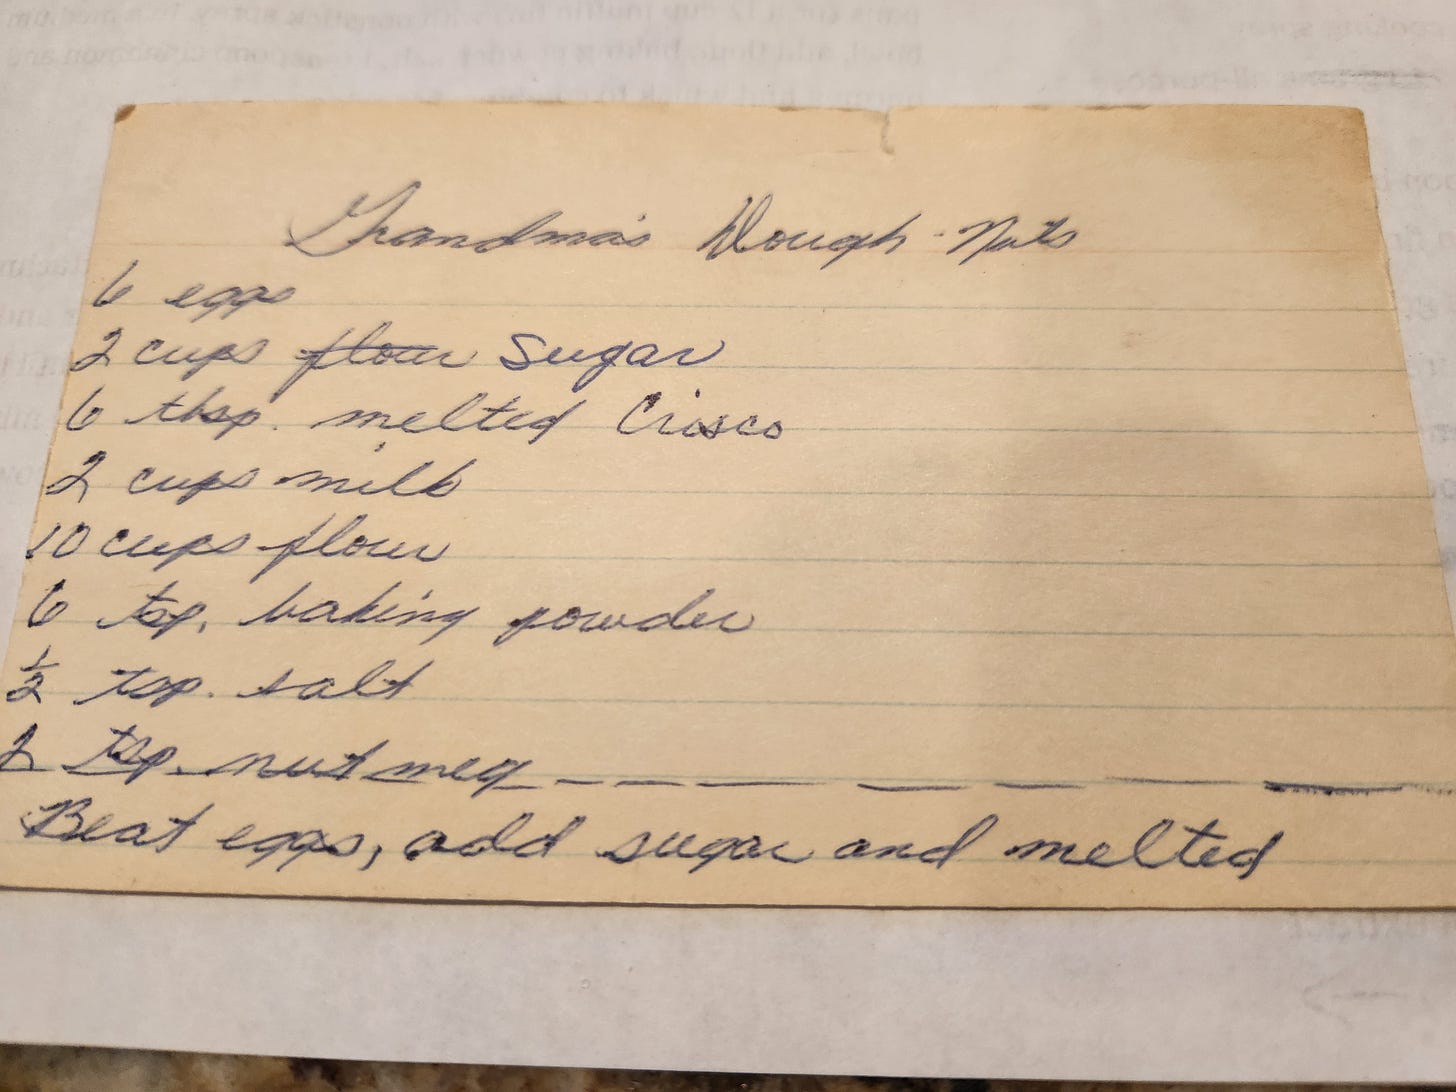 Grandma's Dough-Nuts
6 eggs
2 cups flour sugar
6 tbsp. melted Crisco
2 cups milk
10 cups flour
6 tsp. baking powder
1/2 tsp. salt
2 tsp. nutmeg
Beat eggs, add sugar and melted